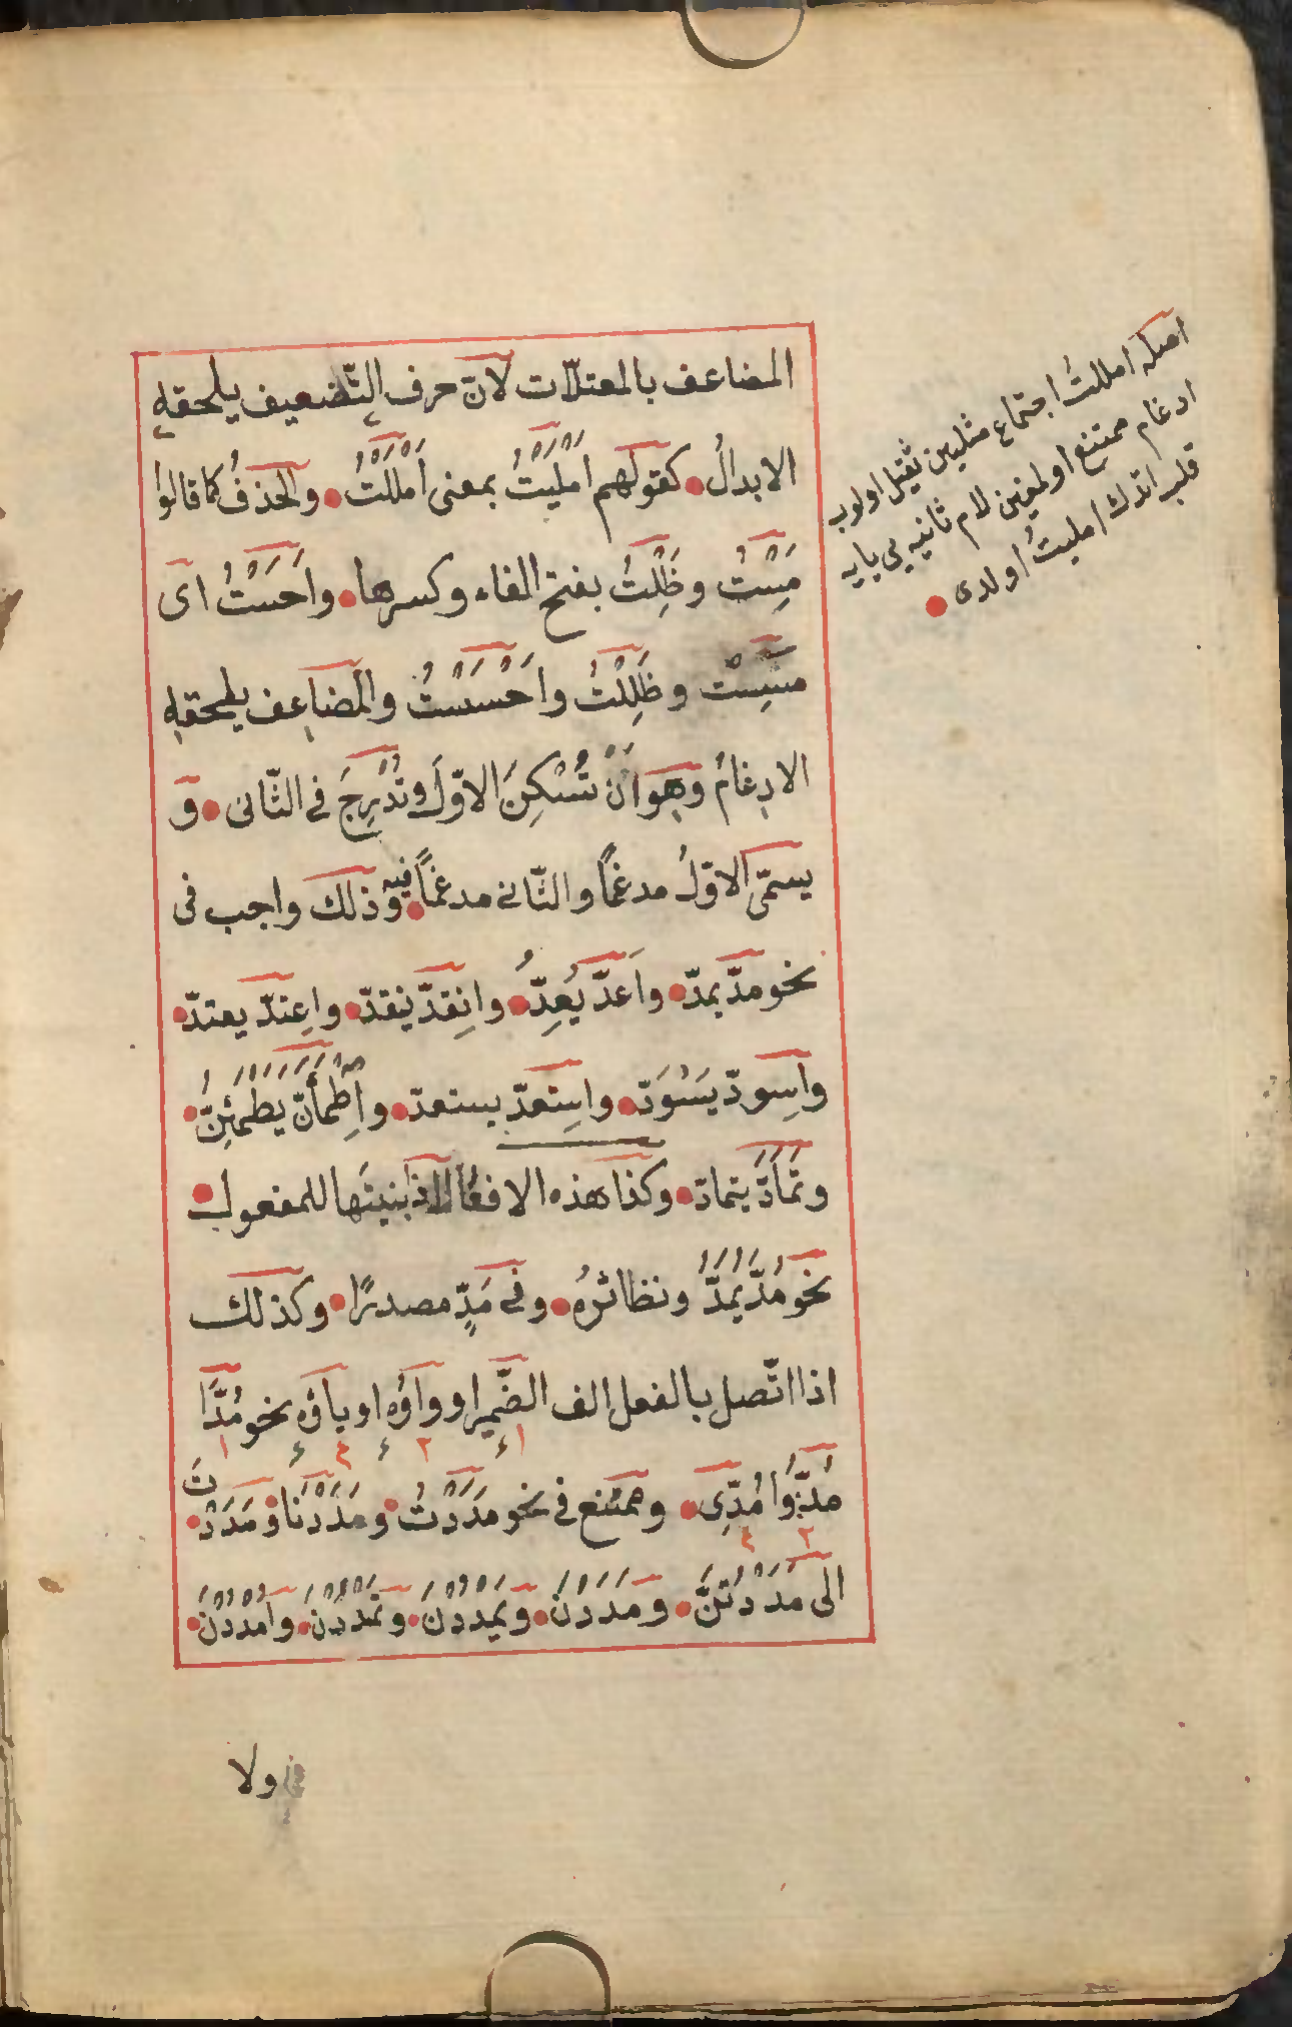 المضاعف بالمعتلّات لانّ حرف التّضعيف يلحقه
الابدالُ كقولهم اَمْلَيْتُ بمعنى اَمْلَلْتُ والحذفُ كما قالوا
مَِسْتُ وظَِلْتُ بفتح الفاء وكسرها واَحَسْتُ اى
مسِسْت وظَلِلْتُ واَحْسَسْتُ والمَضاعِف يلحقه
الادغامُ وهو اَنْ تُسْكِنَ الاوّلَ وتُدْرِجَ فى الثّانى و
يسمّى الاوّلُ مدغمًا والثّانى مدغمًا فيه وذلك واجب فى
نحو مدّ يمدّ واَعدّ يُعِدُّ وانِقدّ ينقدّ واعِتدّ يعتدّ
واسِودّ يَسْوَدّ واسِتعدّ يستعدّ واِطْمَأَنَّ يَطْمَئِنُّ
وتَمَادَّ يتمادّ وكذا هذه الافعال اذا بنيتَها للمفعول
نحو مُدَّ يُمَدُّ ونظائرُه وفى مَدٍّ مصدرًا وكذلك
اذا اتّصل بالفعل الف الضّمير او واوُه او ياؤه نحو مُدَّا
مُدُّوا مُدِّى وممتنع فى نحو مَدَدْتُ ومَدَدْنَا ومَدَدْتَ
الى مَدَدْتُنَّ ومَدَدْنَ ويَمْدُدْنَ وتَمْدُدْنَ واُمْدُدْنَ
ولا
اصله امللتُ اجتماع مثلين ثقيل اولوب
ادغام ممتنع اولمغين لام ثانيه يى يايه
قلب اتدك امليتُ اولدى